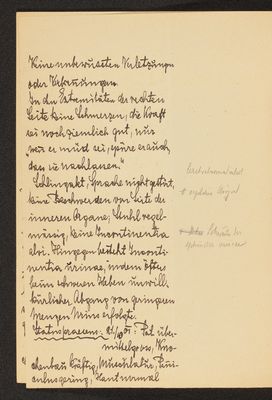 Keine unbewussten Verletzungen
oder Verbrennungen.
In den Extremitäten der rechten
Seite keine Schmerzen, die Kraft
sei noch ziemlich gut, nur
"wenn er müd sei, spüre er auch,
dass sie nachlassen."
Schlingakt, Sprache nicht gestört,
keine Beschwerden von Seite der
inneren Organe; Stuhl regel-
mässig, keine Incontinentia
alvi. Hingegen besteht Inconti-
nentia urinae, indem öfters
beim schweren Heben unwill-
kürlicher Abgang von geringeren
Mengen Urins erfolgte.
Status praesens: Pat. über-
mittelgross, Kno-
chenbau kräftig, Muskulatur, Pani-
culus gering, Haut normal